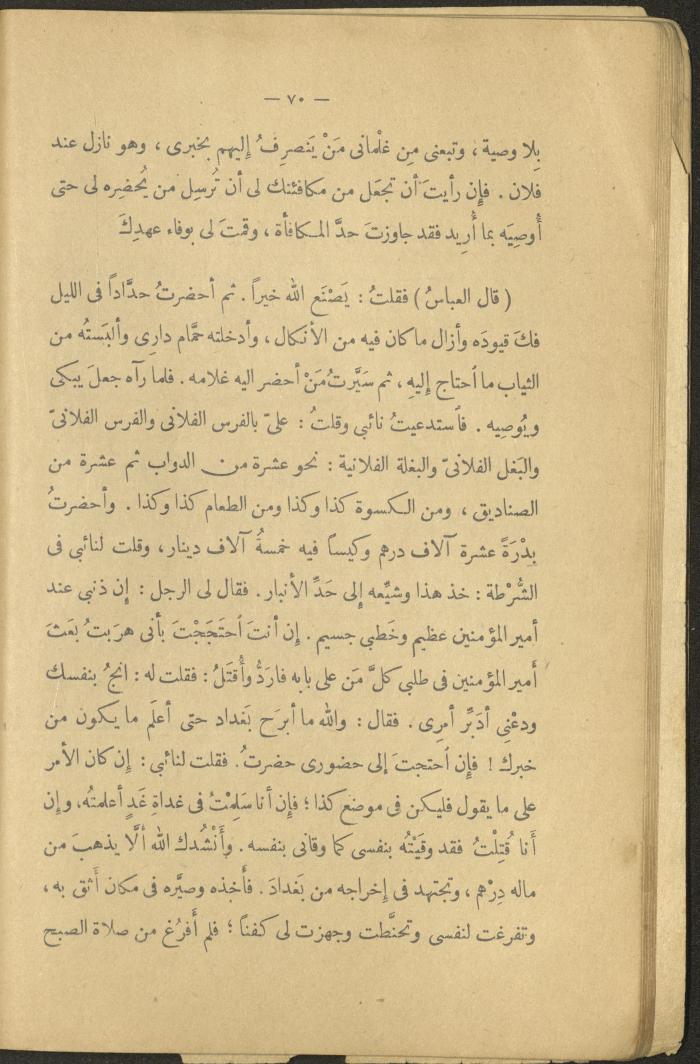 — ٧٠ —
بِلا وصية ، وتبعنى مِن غلْمانى مَنْ يَنصرِفُ إِليهم بخبرى ، وهو نازل عند
فلان . فإِن رأيتَ أن تجعَل من مكافئتك لى أن تُرسِل من يُحضِره لى حتى
أُوصِيَه بما أُرِيد فقد جاوزتَ حدَّ المكافأة ، وقمتَ لى بوفاء عهدِكَ
( قال العباسُ ) فقلتُ : يَصْنَع الله خيراً . ثم أحضرتُ حدَّاداً فى الليل
فكَ قيودَه وأزال ما كان فيه من الأنكال ، وأدخلته حمَّام دارى وألبَستُه من
الثياب ما احتاج إِليهِ ، ثم سَيَّرتُ مَنْ أحضر اليه غلامه . فلما رآه جعلَ يبكى
ويُوصِيه . فاستدعيتُ نائبى وقلتُ : علىّ بالفرس الفلانى والفرس الفلانىّ
والبَغل الفلانىّ والبغلة الفلانية : نحو عشرة من الدواب ثم عشرة من
الصناديق ، ومن الكسوة كذا وكذا ومن الطعام كذا وكذا . وأحضرتُ
بِدْرَةً عشرة آلاف درهم وكيساً فيه خمسةُ آلاف دينار ، وقلت لنائبى فى
الشُّرْطة : خذ هذا وشيِّعه إلى حَدِّ الأنبار . فقال لى الرجل : إِن ذنبى عند
أمير المؤمنين عظيم وخَطبى جسيم . إِن أنتَ احتَجَجْتَ بأنى هرَبتُ بَعَثَ
أَمير المؤمنين فى طلبى كلَّ مَن على بابه فارَدُّ وأُقتَلُ : فقلت له : انجُ بنفسك
ودعْنِى أدَبِّر أمرِى . فقال : والله ما أبرَح بَغداد حتى أعلَم ما يكون من
خبرك ! فإِن احتجتَ إلى حضورى حضرتُ . فقلت لنائبى : إِن كان الأمر
على ما يقول فليكن فى موضع كذا ؛ فإِن أنا سَلِمْتُ فى غداةِ غَدٍ أعلمتُه ، وإِن
أَنا قُتِلْتُ فقد وقَيْتُه بنفسى كما وقانى بنفسه . وأَنْشُدك الله ألَّا يذهبَ من
ماله دِرْهم ، وتجتهد فى إِخراجه من بَغدادَ . فأخذه وصيَّره فى مكان أَثق به ،
وتفرغت لنفسى وتحنَّطت وجهزت لى كفنًا ؛ فلم أَفرُغ من صلاة الصبح